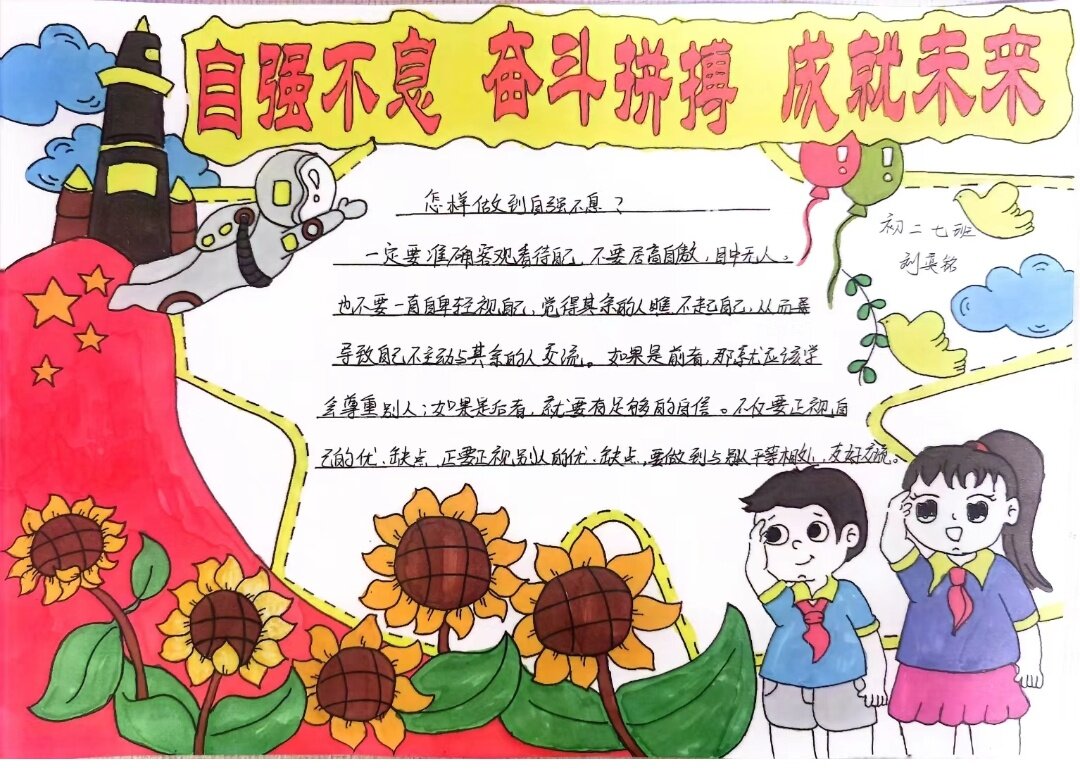 自强不息 奋斗拼搏 成就未来
怎样做到自强不息？
初二七班
刘英铭
一定要准确客观看待自己，不要居高自傲，目中无人。
也不要一直自卑轻视自己，觉得其余的人瞧不起自己，从而
导致自己不主动与其余的人交流。如果是前者，那就应该学
会尊重别人；如果是后者，就要有足够的自信。不仅要正视自
己的优、缺点，正要正视别人的优、缺点，要做到与别人平等相处，友好交流。